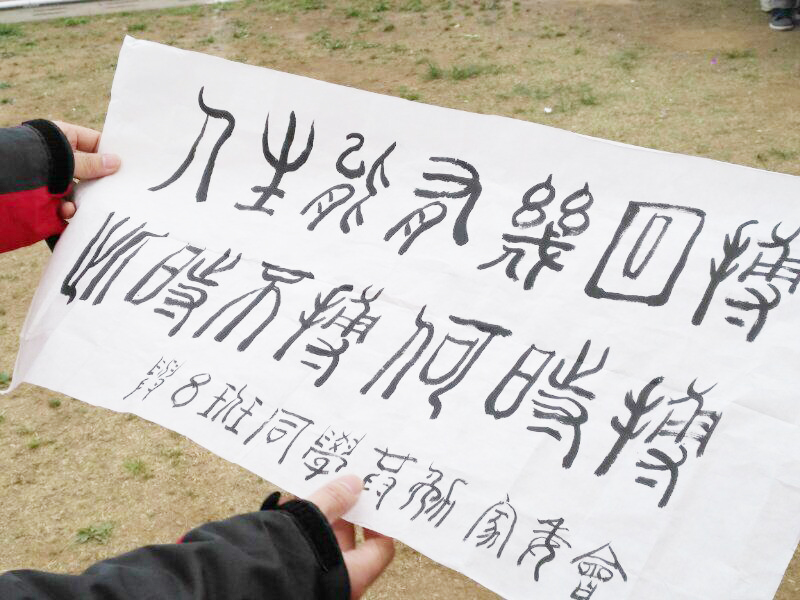 人生能有幾回搏
此時不搏何時搏
8班同學共勉 家委會